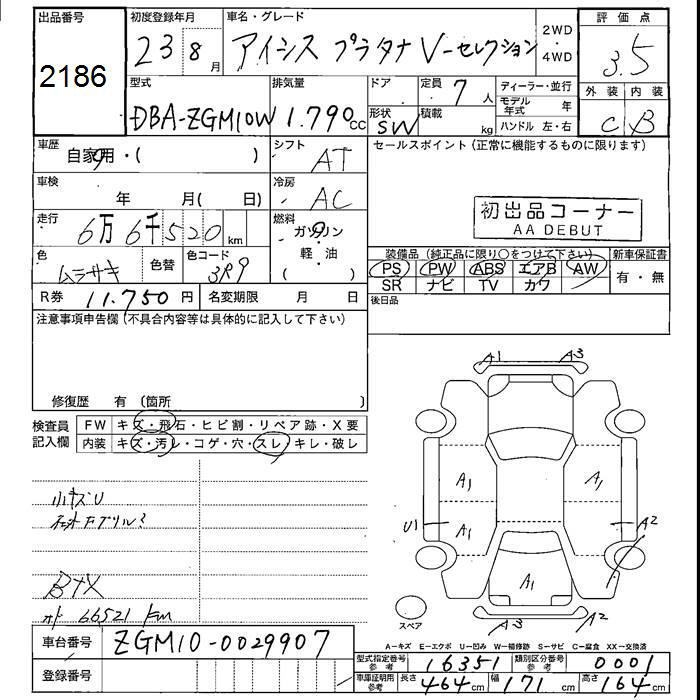 出品番号
2186
初度登録年月
23 8 月
車名・グレード
アイシス プラタナ V-セレクション
2WD
・
4WD
評価点
3.5
外装 内装
C B
型式
DBA-ZGM10W
排気量
1.790 cc
ドア
形状
SW
定員
7 人
積載
kg
ディーラー・並行
モデル年式 年
ハンドル 左・右
車歴
自家用・( )
シフト
AT
車検
年 月( 日)
冷房
AC
走行
6万 6千 520 km
燃料
ガソリン
(軽・油)
色
ムラサキ
色替
色コード
3R9
R券 11.750 円
名変期限 月 日
セールスポイント(正常に機能するものに限ります)
初出品コーナー
AA DEBUT
装備品(純正品に限り○をつけて下さい)
新車保証書
PS PW ABS エアB AW
SR ナビ TV カワ
有・無
後日品
注意事項申告欄(不具合内容等は具体的に記入して下さい)
修復歴 有(箇所 )
検査員
記入欄
FW キズ・飛石・ヒビ割・リペア跡・X要
内装 キズ・汚レ・コゲ・穴・スレ・キレ・破レ
小キズU
オド 66521 Km
車台番号 ZGM10-0029907
登録番号
A1 A3
A1 A1
U1 A1 A2
A1
A3 A2
スペア
A-キズ E-エクボ U-凹み W-補修跡 S-サビ C-腐食 XX-交換済
型式指定番号
参考
16351
類別区分番号
参考
0001
車庫証明用
参考
長さ 464 cm 幅 171 cm 高さ 164 cm